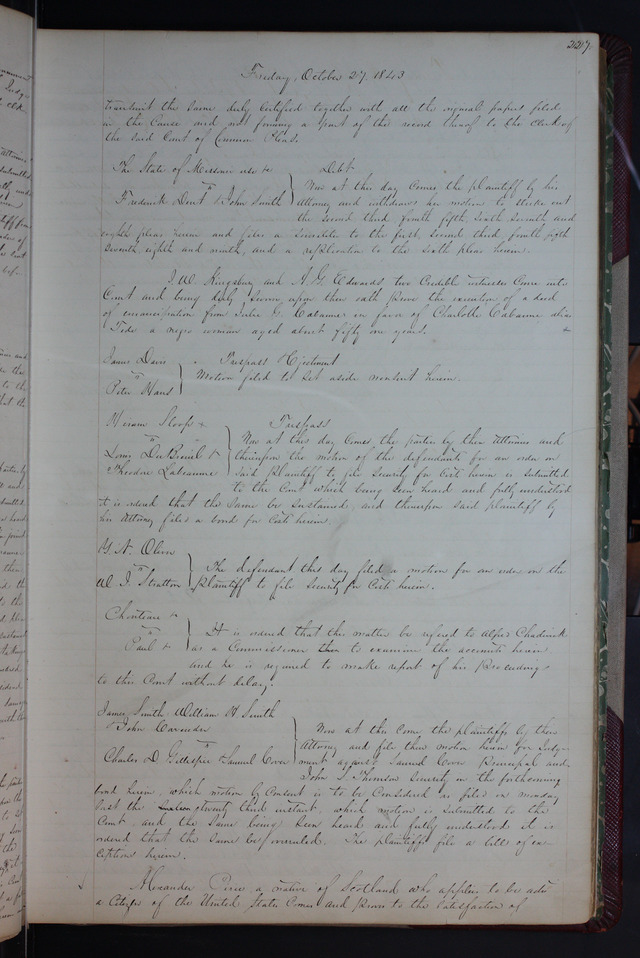 227.
Friday, October 27, 1843
transmit the same duly Certified together with all the original papers filed
in the Cause and not forming a part of the record thereof to the Clerk of
the said Court of Common Pleas.
The State of Missouri use &c Debt
vs
Frederick Dent & John Smith
Now at this day Comes the plaintiff by his
Attorney and withdraws her motion to strike out
the second third fourth fifth sixth seventh and
eighth pleas herein and files a demurrer to the first, second third fourth fifth
seventh eighth and ninth, and a replication to the sixth pleas herein.
J. W. Kingsbury and A. G. Edwards, two Credible witnesses Come into
Court and being duly sworn, upon their oath prove the execution of a deed
of emancipation from Julie G. Cabanne in favor of Charlotte Cabanne alias
a negro woman aged about fifty one years.
James Davis Trespass & Ejectment
vs
Peter Hans
Motion filed to set aside nonsuit herein.
Hiram Stoop Trespass
vs
Louis DuBreuil &
Theodore Labeaume
Now at this day Comes the parties by their Attornies and
thereupon the motion of the defendants for an order on
said plaintiff to give security for Costs herein is submitted
to the Court which being seen heard and fully understood
it is ordered that the same be sustained, and thereupon said plaintiff by
his Attorney files a bond for Costs herein.
vs
W J Stratton
The defendant this day filed a motion for an order on the
plaintiff to file security for Costs herein.
Chouteau &c
vs
Paul &c
It is ordered that this matter be refered to Alfred Chadwick
as a Commissioner to examine the accounts herein
and he is required to make report of his proceedings
to this Court without delay.
James Smith William H Smith
& John Cavender
vs
Charles D. Gillespie & Samuel Coon
Now at this Come the plaintiffs by their
Attorney and file their motion herein for Judg-
ment against Samuel Coon Principal and
John S. Thomson security in the forthcoming
bond herein, which motion by Consent is to be Considered as filed on monday
last the twenty third instant, which motion is submitted to the
Court and the same being seen heard and fully understood it is
ordered that the same be overruled. The plaintiffs file a bill of ex-
ception herein.
Alexander a native of Scotland who applies to be admitted
a Citizen of the United States Comes and proves to the satisfaction of